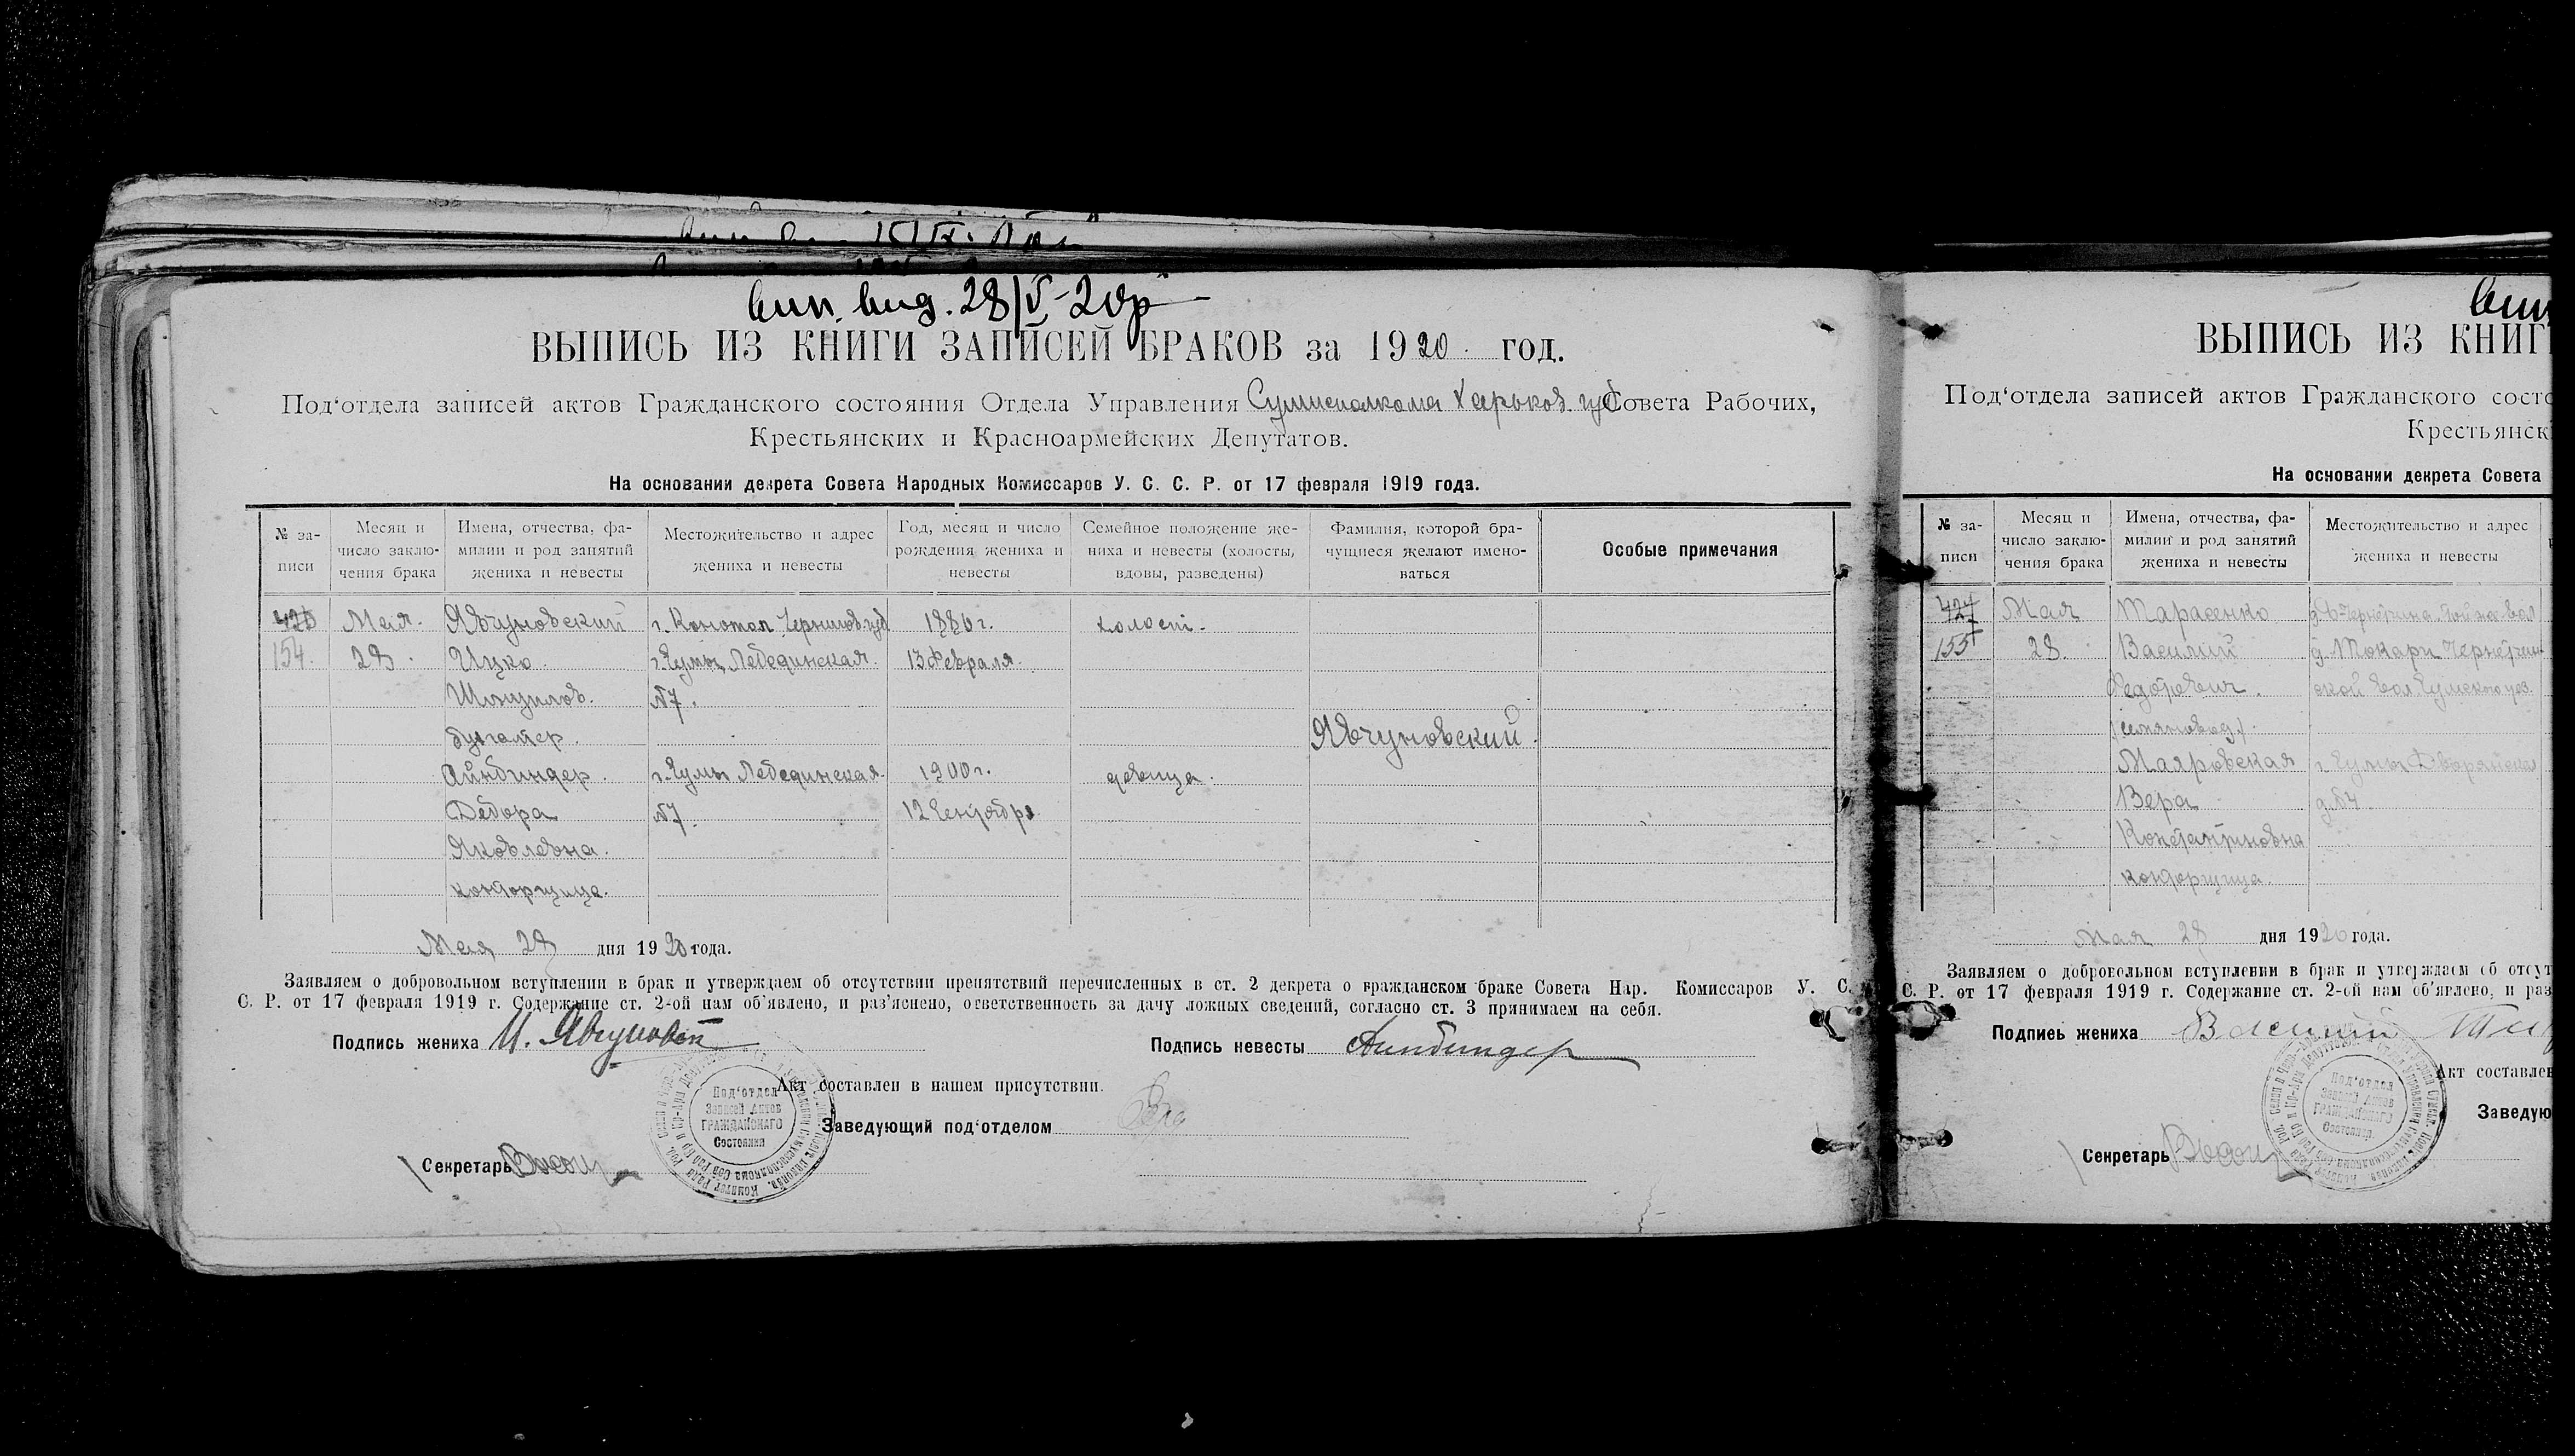 вып. выд. 28/V-20р
ВЫПИСЬ ИЗ КНИГИ ЗАПИСЕЙ БРАКОВ за 1920 год.
Под‘отдела записей актов Гражданского состояния Отдела Управления Сумисполкома Харьков. губ Совета Рабочих,
Крестьянских и Красноармейских Депутатов.
На основании декрета Совета Народных Комиссаров У. С. С. Р. от 17 февраля 1919 года.
№ за-
писи
Месяц и
число заклю-
чения брака
Имена, отчества, фа-
милии и род занятий
жениха и невесты
Местожительство и адрес
жениха и невесты
Год, месяц и число
рождения жениха и
невесты
Семейное положение же-
ниха и невесты (холосты,
вдовы, разведены)
Фамилия, которой бра-
чущиеся желают имено-
ваться
Особые примечания
426 Мая. Явчуновский г. Конотоп Чернигов губ 1886 г. холост.
154. 28. Ицко. г. Сумы, Лебединская. 13 Февраля.
№7.
бухгалтер. Явчуновский
Айнбиндер. г. Сумы Лебединская. 1900 г. девица.
Дебора №7. 12 Сентября
Яковлевна.
конторщица.
Мая 28 дня 1920 года.
Заявляем о добровольном вступлении в брак и утверждаем об отсутствии препятствий перечисленных в ст. 2 декрета о гражданском браке Совета Нар. Комиссаров У. С.
С. Р. от 17 февраля 1919 г. Содержание ст. 2-ой нам об‘явлено, и раз‘яснено, ответственность за дачу ложных сведений, согласно ст. 3 принимаем на себя.
Подпись жениха И. Явчуновский Подпись невесты Айнбиндер
Акт составлен в нашем присутствии.
Заведующий под‘отделом
Секретарь
Под‘отдел
Записей Актов
ГРАЖДАНСКАГО
Состояния
ВЫПИСЬ ИЗ КНИГ
Под‘отдела записей актов Гражданского сост
Крестьянск
На основании декрета Совета
№ за-
писи
Месяц и
число заклю-
чения брака
Имена, отчества, фа-
милии и род занятий
жениха и невесты
Местожительство и адрес
жениха и невесты
427 Мая Тарасенко
155 28. Василий д. Токари Чернетчин
Федорович. ской вол Сумского уез.
Маяровская г. Сумы Дворянская
Вера д. №4
Константиновна
конторщица.
Мая 28 дня 1920 года.
Заявляем о добровольном вступлении в брак и утверждаем об отсут
С. Р. от 17 февраля 1919 г. Содержание ст. 2-ой нам об‘явлено, и раз
Подпись жениха Василий
Акт составлен
Заведую
Секретарь
Под‘отдел
Записей Актов
ГРАЖДАНСКАГО
Состояния